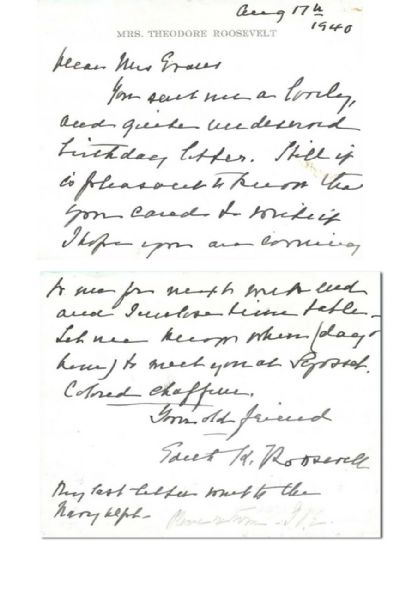 Aug 17th
1940
MRS. THEODORE ROOSEVELT
Dear Mrs
You sent me a lovely,
and quite undeserved
birthday letter. Still it
is pleasant to know that
you cared to write it
I hope you are coming
to me for next week end
and I inclose time table -
Let me know when (day &
hour) to meet you at Syosset.
Colored chaffeur.
Your old friend
Edith K. Roosevelt
My last letter went to the
Navy dept -